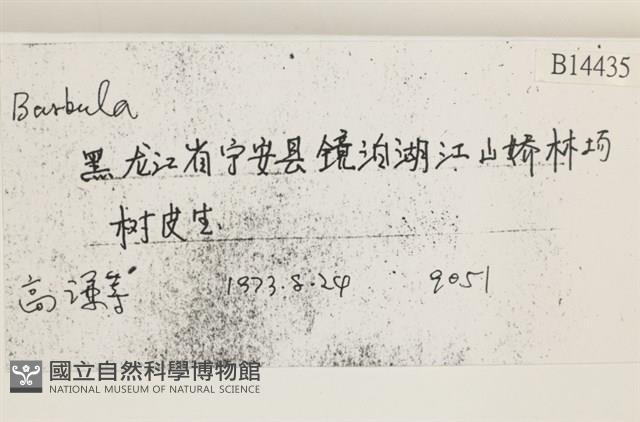 B14435
Barbula
黑龙江省宁安县镜泊湖江山娇林场
树皮生
高谦等 1973.8.24 9051
國立自然科學博物館
NATIONAL MUSEUM OF NATURAL SCIENCE